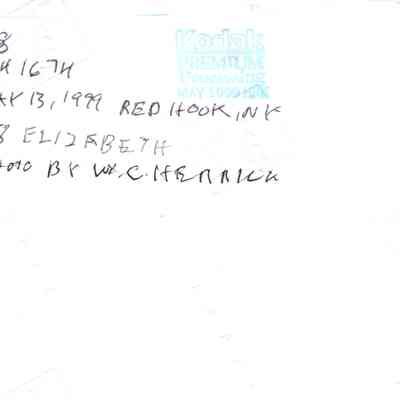 8
H 16TH
AY 13, 1999 RED HOOK, NY
8 ELIZABETH
HOTO BY WM. C. HERRICK
Kodak
PREMIUM
Processing
MAY 1999